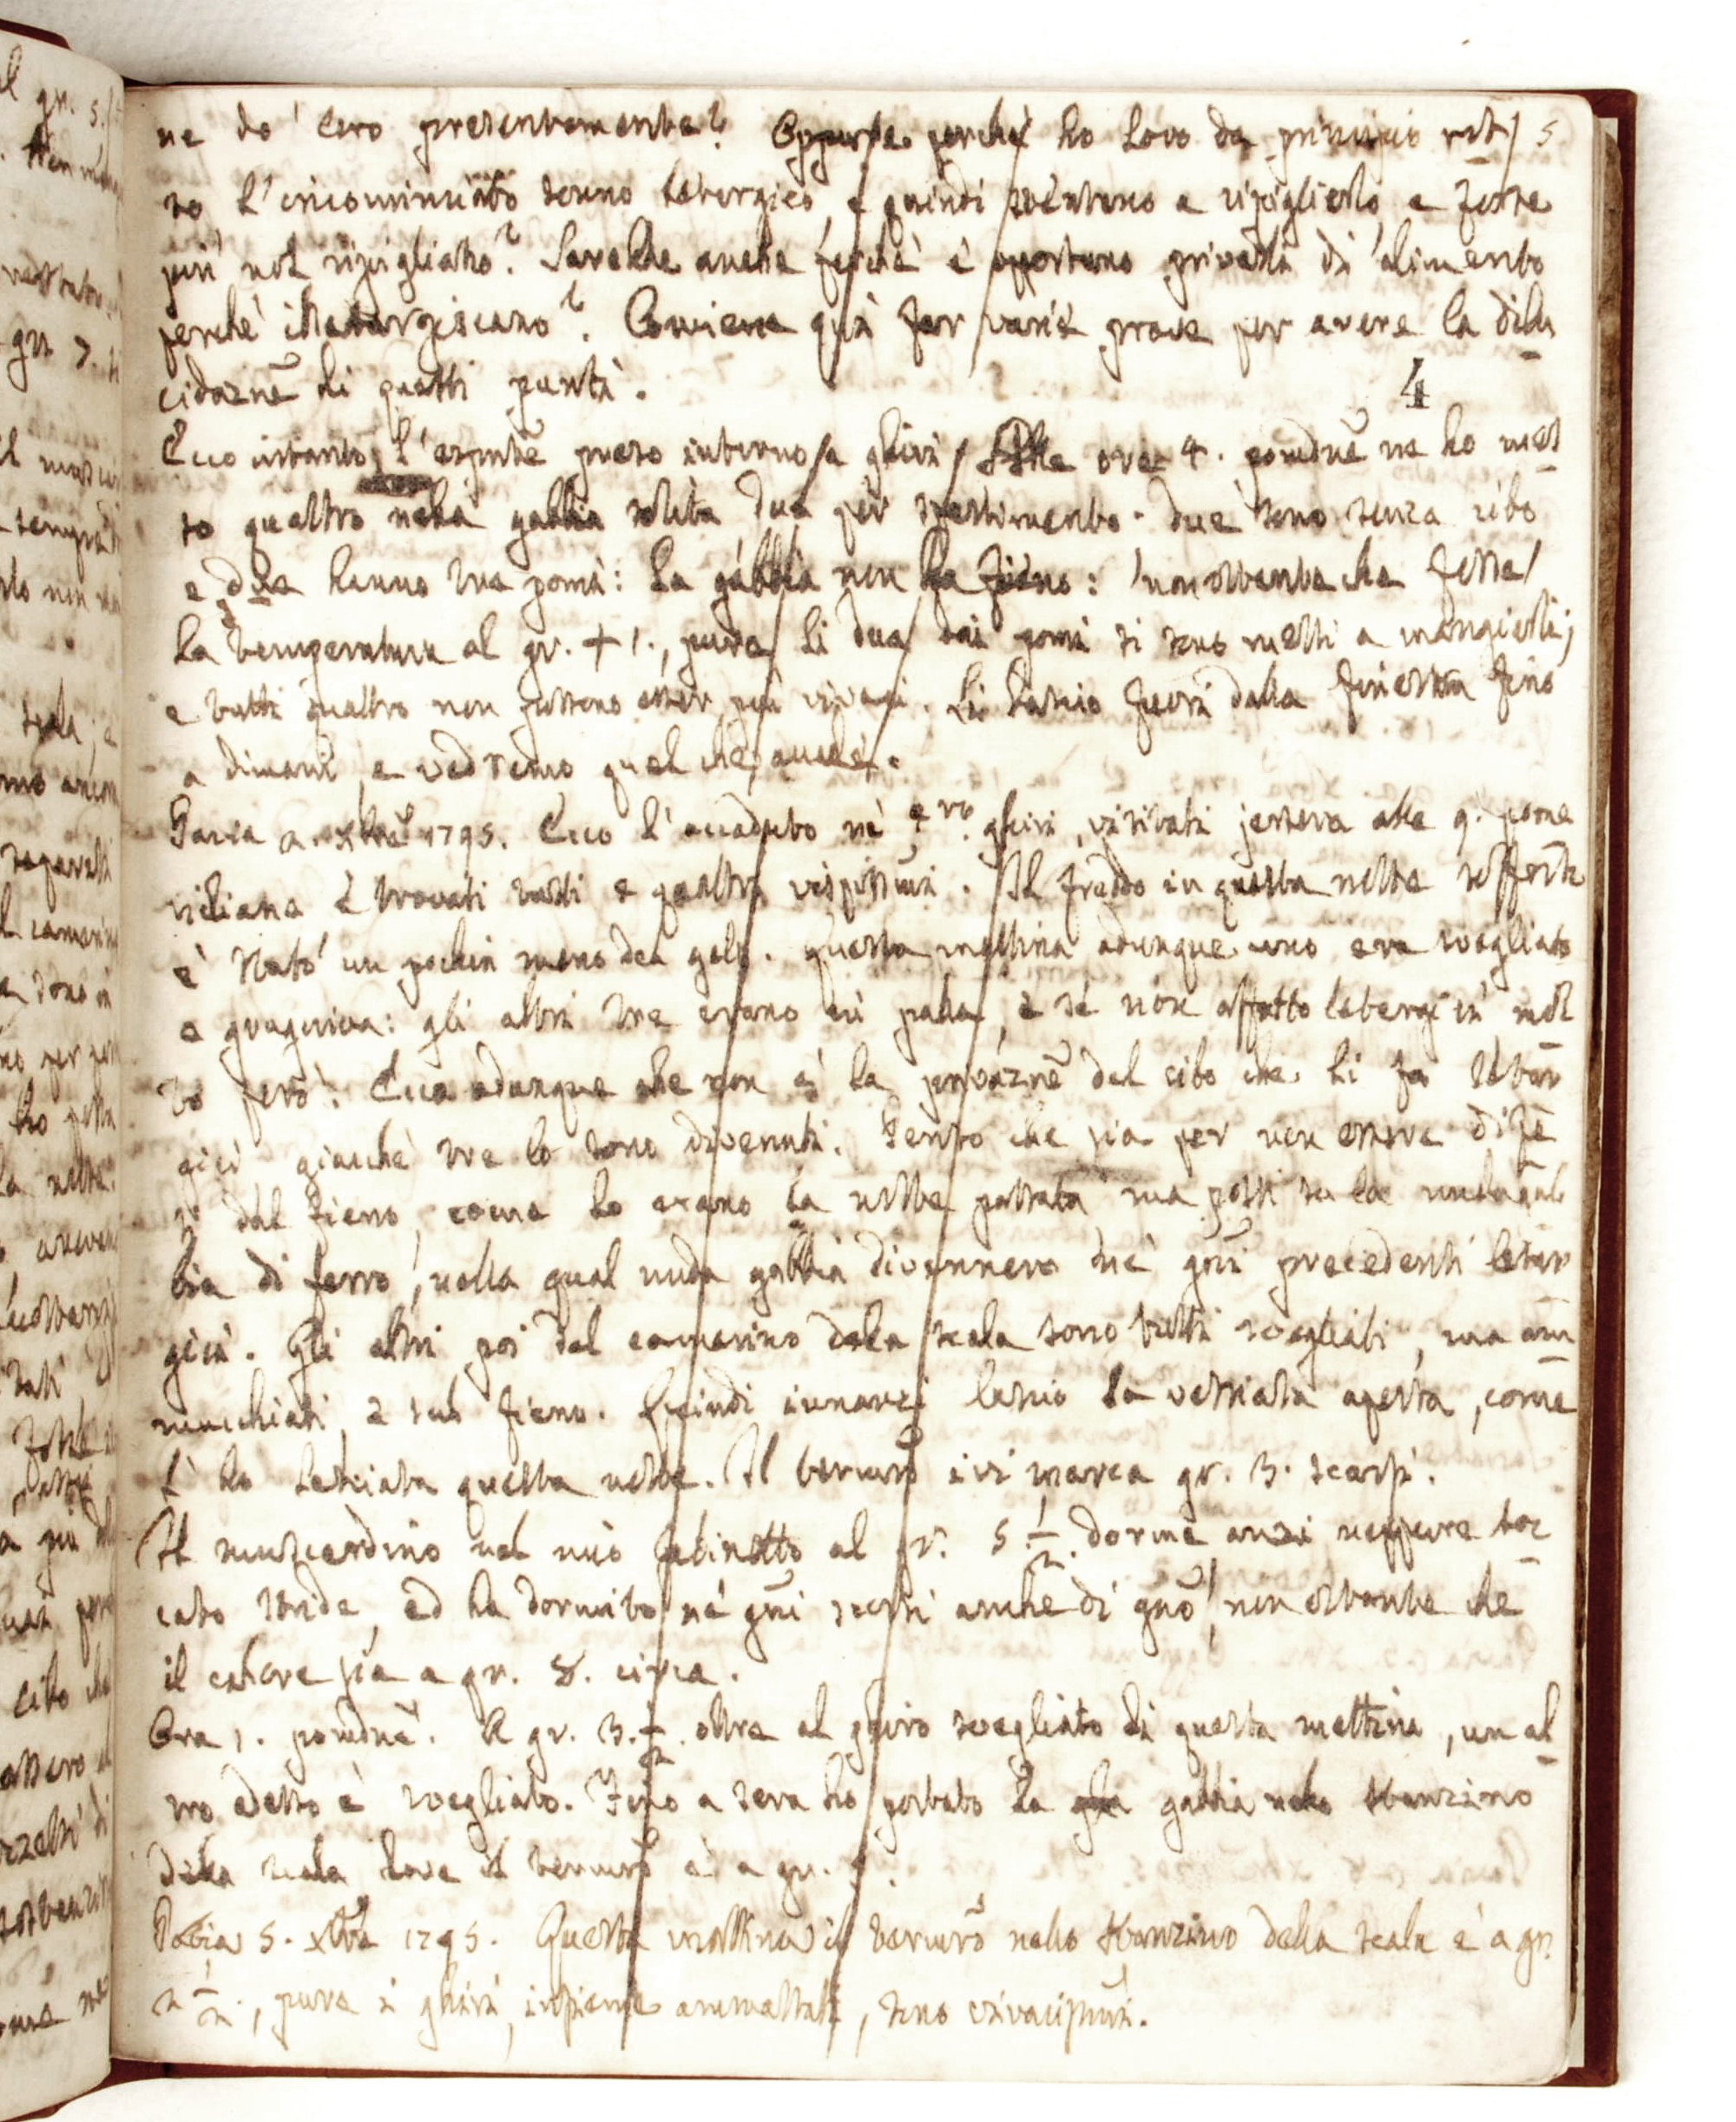 ne do' loro presentemente? Oppure perchè ho loro da principio rot 5
to l'incominciato sonno letargico, e quindi stentano a ripigliarlo, e forse
più nol ripigliano? Sarebbe anche perchè è opportuno privarli di alimento
perchè illetargiscano? Conviene quì far varie prove per avere la dilu
cidazne di questi punti.
4
Ecco intanto l'espmte preso intorno a ghiri. Alle ore 4. pomdne ne ho mes
so quattro nella gabbia solita due per spartimento. due sono senza cibo
e due hanno tre pomi: la gabbia non ha fieno: nonostante che fosse
la temperatura al gr. + 1., pure li due dai pomi si sono messi a mangiarli;
e tutti quattro non possono esser più vivaci. Li lascio fuori dalla finestra fino
a dimani, e vedremo quel che
Pavia 2. xbre 1795. Ecco l'accaduto ne' 4ro ghiri, visitati jersera alle 9. pome
ridiane è trovati tutti e quattro vispissmi. Il freddo in questa notte sofferto
è stato un pochin meno del gelo. Questa mattina adunque uno era svegliato
e girava: gli altri tre erano in palla, e se non affatto letargici mol
to però. Ecco adunque che non è la privazne del cibo che li fa letar
gici giacchè tre lo sono divenuti. Penso che sia per non essere dife
si dal fieno, come lo erano la notte passata ma posti su la nuda gab
bia di ferro, nella qual nuda gabbia divennero ne' gni precedenti letar
gici. Gli altri poi del camerino della scala sono tutti svegliati, ma am
mucchiati, e sul fieno. Quindi innanzi lascio la vetriata aperta, come
l'ho lasciata questa notte. Il termro ivi marca gr. 3. scarsi.
Il muscardino nel mio gabinetto al gr. 5 1/2. dorme anzi neppure toc
cato stride, ed ha dormito ne' gni scorsi anche di gno, non ostante che
il calore sia a gr. 8. circa.
Ora 1. pomdne. A gr. 3. 1/2. oltre al ghiro svegliato di questa mattina, un al
tro adesso è svegliato. Fino a sera ho portato la gabbia nello stanzino
della scala dove il termro è a gr. 5.
Pavia 5. xbre 1795. Questa mattina il termro nello stanzino della scala è a gr.
2 1/2., pure i ghiri, insieme ammassati, sono vivacissmi.